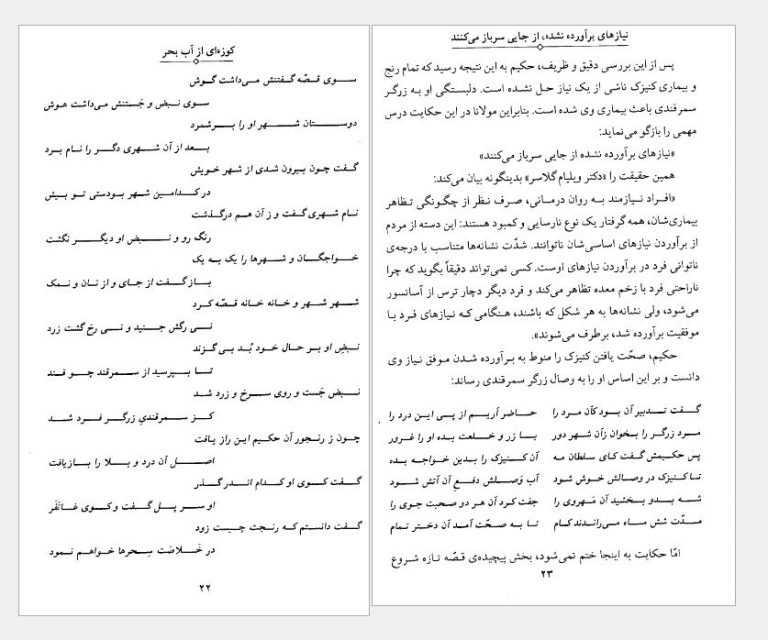 کوزه‌ای از آب بحر
ســوی قـصّه گـفتنش مـی‌داشت گـوش
سـوی نـبـض و جَـستنش مـی‌داشت هـوش
دوســـتان شـــهر او را بـــرشمرد
بـعد از آن شـهری دگـر را نام بـرد
گفت چون بیرون شدی از شهر خویش
در کـدامـین شهر بـودستی تـو بـیش
نـام شهـری گفت و ز آن هـم درگـذشت
رنگ رو و نـبـض او دیگـر نگشت
خـواجگـان و شـهرها را یک بـه یک
بـازگـفت از جـای و از نـان و نـمک
شـهر شهر و خـانه خـانه قـصّه کـرد
نـی رگش جنبید و نـی رخ گشت زرد
نـبضِ او بـر حـال خـود بُـد بـی‌گـزند
تـا بـپرسید از سـمرقند چـو قـند
نـبـض جَست و روی سـرخ و زرد شـد
کـز سـمرقندیِ زرگـر فـرد شـد
چون ز رنجور آن حکیم این راز یافت
اصـل آن درد و بـلا را بـازیافت
گفت کـوی او کـدام انـدر گـذر
او سـر پـل گـفت و کـوی غـاتَفَر
گـفت دانستم کـه رنجت چـیست زود
در خَـلاصَت سِـحرها خـواهـم نـمود
۲۲
نیازهای برآورده نشده، از جایی سرباز می‌کنند
پس از این بررسی دقیق و ظریف، حکیم به این نتیجه رسید که تمام رنج
و بیماری کنیزک ناشی از یک نیاز حل نشده است. دلبستگی او به زرگر
سمرقندی باعث بیماری وی شده است. بنابراین مولانا در این حکایت درس
مهمی را بازگو می‌نماید:
«نیازهای برآورده نشده از جایی سرباز می‌کنند»
همین حقیقت را «دکتر ویلیام گلاسر» بدینگونه بیان می‌کند:
«افـراد نـیازمند بـه روان درمـانی، صـرف نـظر از چگـونگی تـظاهر
بیماری‌شان، همه گرفتار یک نوع نارسایی و کمبود هستند: این دسته از مردم
از برآوردن نیازهای اساسی‌شان ناتوانند. شدّت نشانه‌ها متناسب با درجه‌ی
ناتوانی فرد در برآوردن نیازهای اوست. کسی نمی‌تواند دقیقاً بگوید که چرا
ناراحتی فرد با زخم معده تظاهر می‌کند و فرد دیگر دچار ترس از آسانسور
می‌شود، ولی نشانه‌ها به هر شکل که باشند، هنگامی که نیازهای فرد با
موفقیت برآورده شد، برطرف می‌شوند».
حکیم، صحّت یافتن کنیزک را منوط به بـرآورده شـدن مـوفق نـیاز وی
دانست و بر این اساس او را به وصال زرگر سمرقندی رساند:
گـفت تـدبیر آن بـود کآن مـرد را حـاضر آریـم از پـی ایـن درد را
مـرد زرگـر را بـخوان زآن شهر دور بـا زر و خـلعت بده او را غـرور
پس حکیمش گـفت کـای سلطان مه آن کـنیزک را بـدین خـواجـه بـده
تـا کـنیزک در وصالش خوش شود آب وَصـلش دفـع آن آتش شـود
شـه بـدو بـخشید آن مَـهروی را جفت کرد آن هر دو صحبت جوی را
مـدّت شش مـاه مـی‌راندند کـام تـا بـه صـحّت آمـد آن دخـتر تمام
امّا حکایت به اینجا ختم نمی‌شود، بخش پیچیده‌ی قصّه تـازه شـروع
۲۳